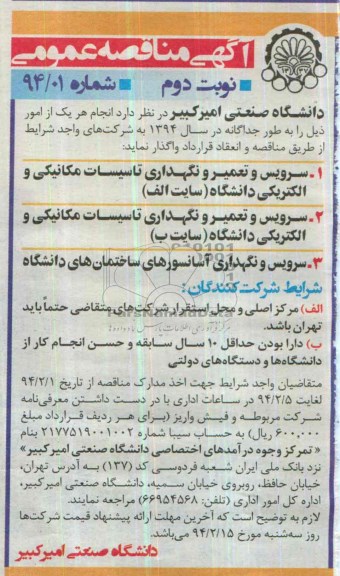 آگهی مناقصه عمومی
نوبت دوم ■ شماره ۹۴/۰۱
دانشگاه صنعتی امیرکبیر در نظر دارد انجام هر یک از امور
ذیل را به طور جداگانه در سال ۱۳۹۴ به شرکت‌های واجد شرایط
از طریق مناقصه و انعقاد قرارداد واگذار نماید:
۱ـ سرویس و تعمیر و نگهداری تاسیسات مکانیکی و
الکتریکی دانشگاه (سایت الف)
۲ـ سرویس و تعمیر و نگهداری تاسیسات مکانیکی و
الکتریکی دانشگاه (سایت ب)
۳ـ سرویس و نگهداری آسانسورهای ساختمان‌های دانشگاه
شرایط شرکت‌کنندگان:
الف) مرکز اصلی و محل استقرار شرکت‌های متقاضی حتماً باید
تهران باشد.
ب) دارا بودن حداقل ۱۰ سال سابقه و حسن انجام کار از
دانشگاه‌ها و دستگاه‌های دولتی
متقاضیان واجد شرایط جهت اخذ مدارک مناقصه از تاریخ ۹۴/۲/۱
لغایت ۹۴/۲/۵ در ساعات اداری با در دست داشتن معرفی‌نامه
شرکت مربوطه و فیش واریز (برای هر ردیف قرارداد مبلغ
۶۰۰,۰۰۰ ریال) به حساب سیبا شماره ۲۱۷۷۵۱۹۰۰۱۰۰۲ بنام
«تمرکز وجوه درآمدهای اختصاصی دانشگاه صنعتی امیرکبیر»
نزد بانک ملی ایران شعبه فردوسی کد (۱۳۷) به آدرس تهران،
خیابان حافظ، روبروی خیابان سمیه، دانشگاه صنعتی امیرکبیر،
اداره کل امور اداری (تلفن: ۶۶۹۵۴۵۶۸) مراجعه نمایند.
لازم به توضیح است که آخرین مهلت ارائه پیشنهاد قیمت شرکت‌ها
روز سه‌شنبه مورخ ۹۴/۲/۱۵ می‌باشد.
دانشگاه صنعتی امیرکبیر